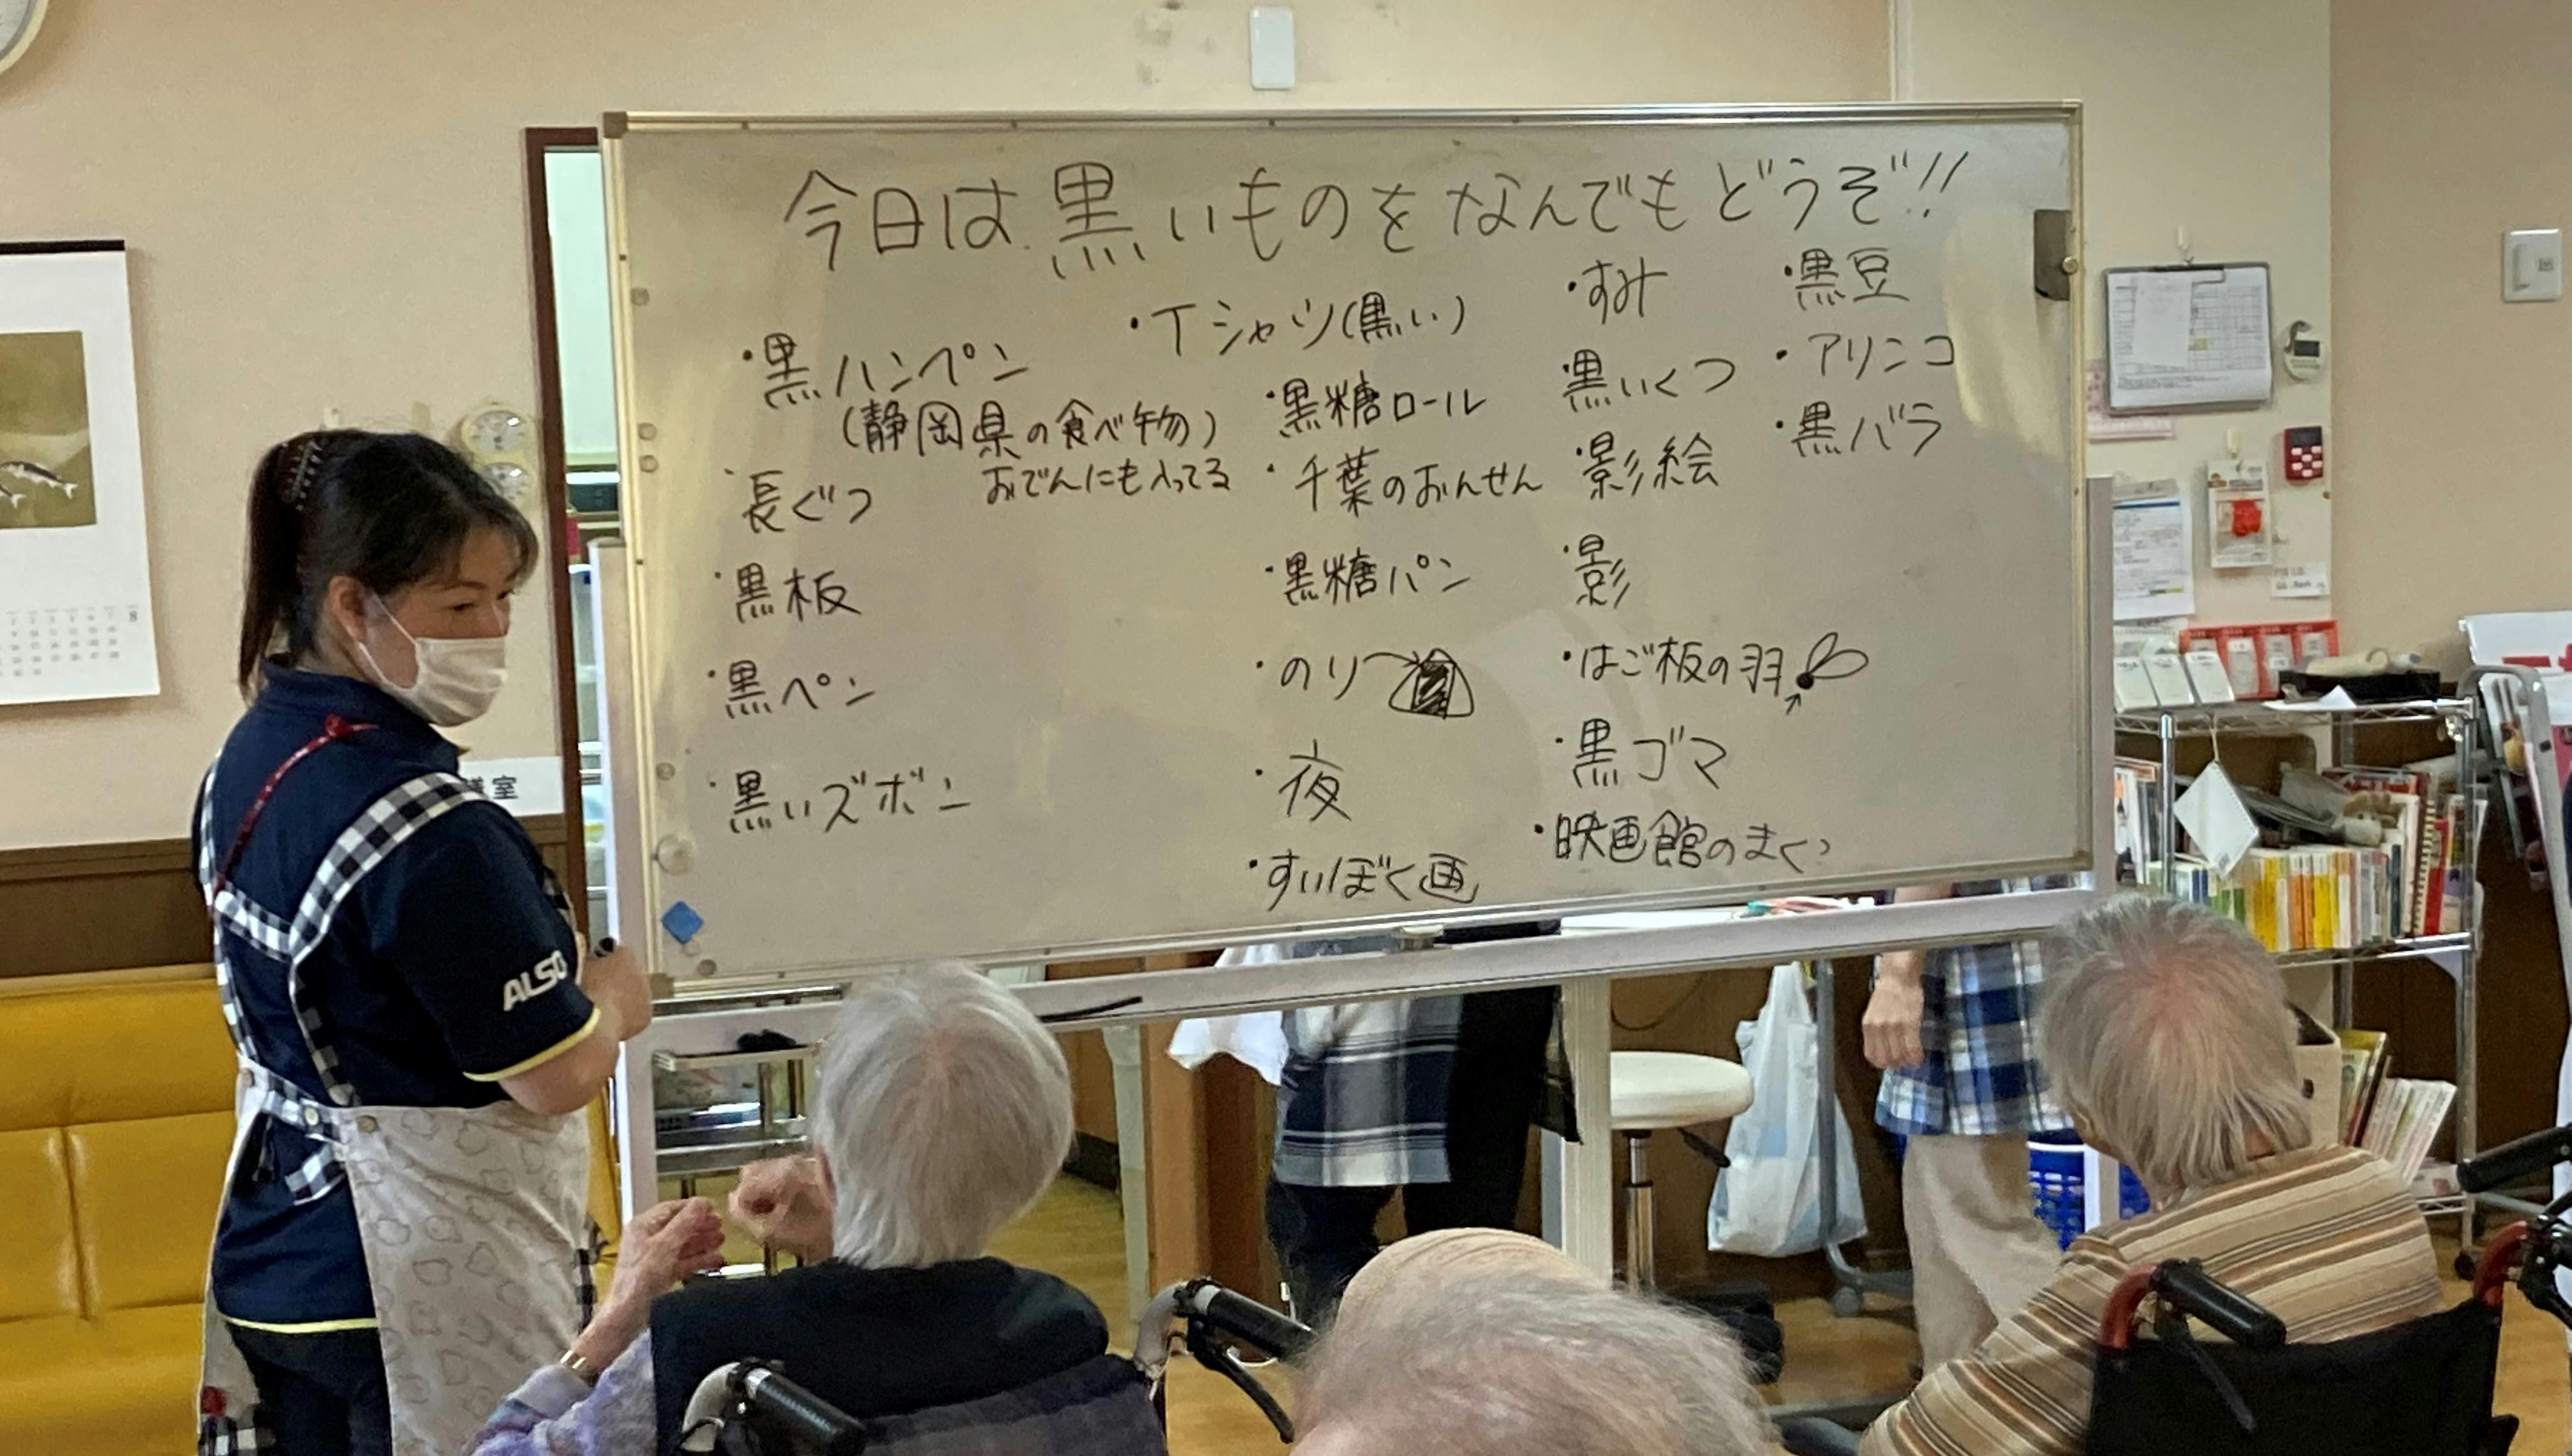 今日は黒いものをなんでもどうぞ!!
・黒ハンペン
(静岡県の食べ物)
おでんにも入ってる
・長ぐつ
・黒板
・黒ペン
・黒いズボン
・Tシャツ(黒い)
・黒糖ロール
・千葉のおんせん
・黒糖パン
・のり
・夜
・すいぼく画
・すみ
・黒いくつ
・影絵
・影
・はご板の羽
・黒ゴマ
・映画館のまく
・黒豆
・アリンコ
・黒バラ
ALSO
室
8